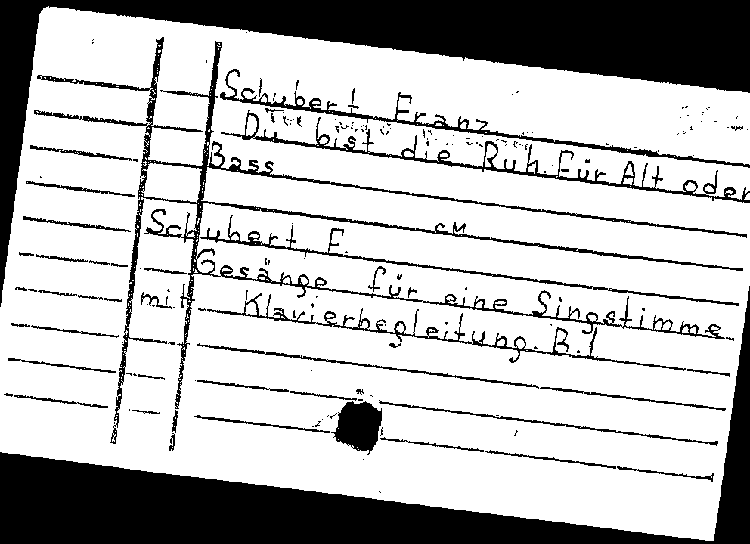 Schubert Franz
Du bist die Ruh. Für Alt oder
Bass
см
Schubert, F.
Gesänge für eine Singstimme
mit Klavierbegleitung. B.1